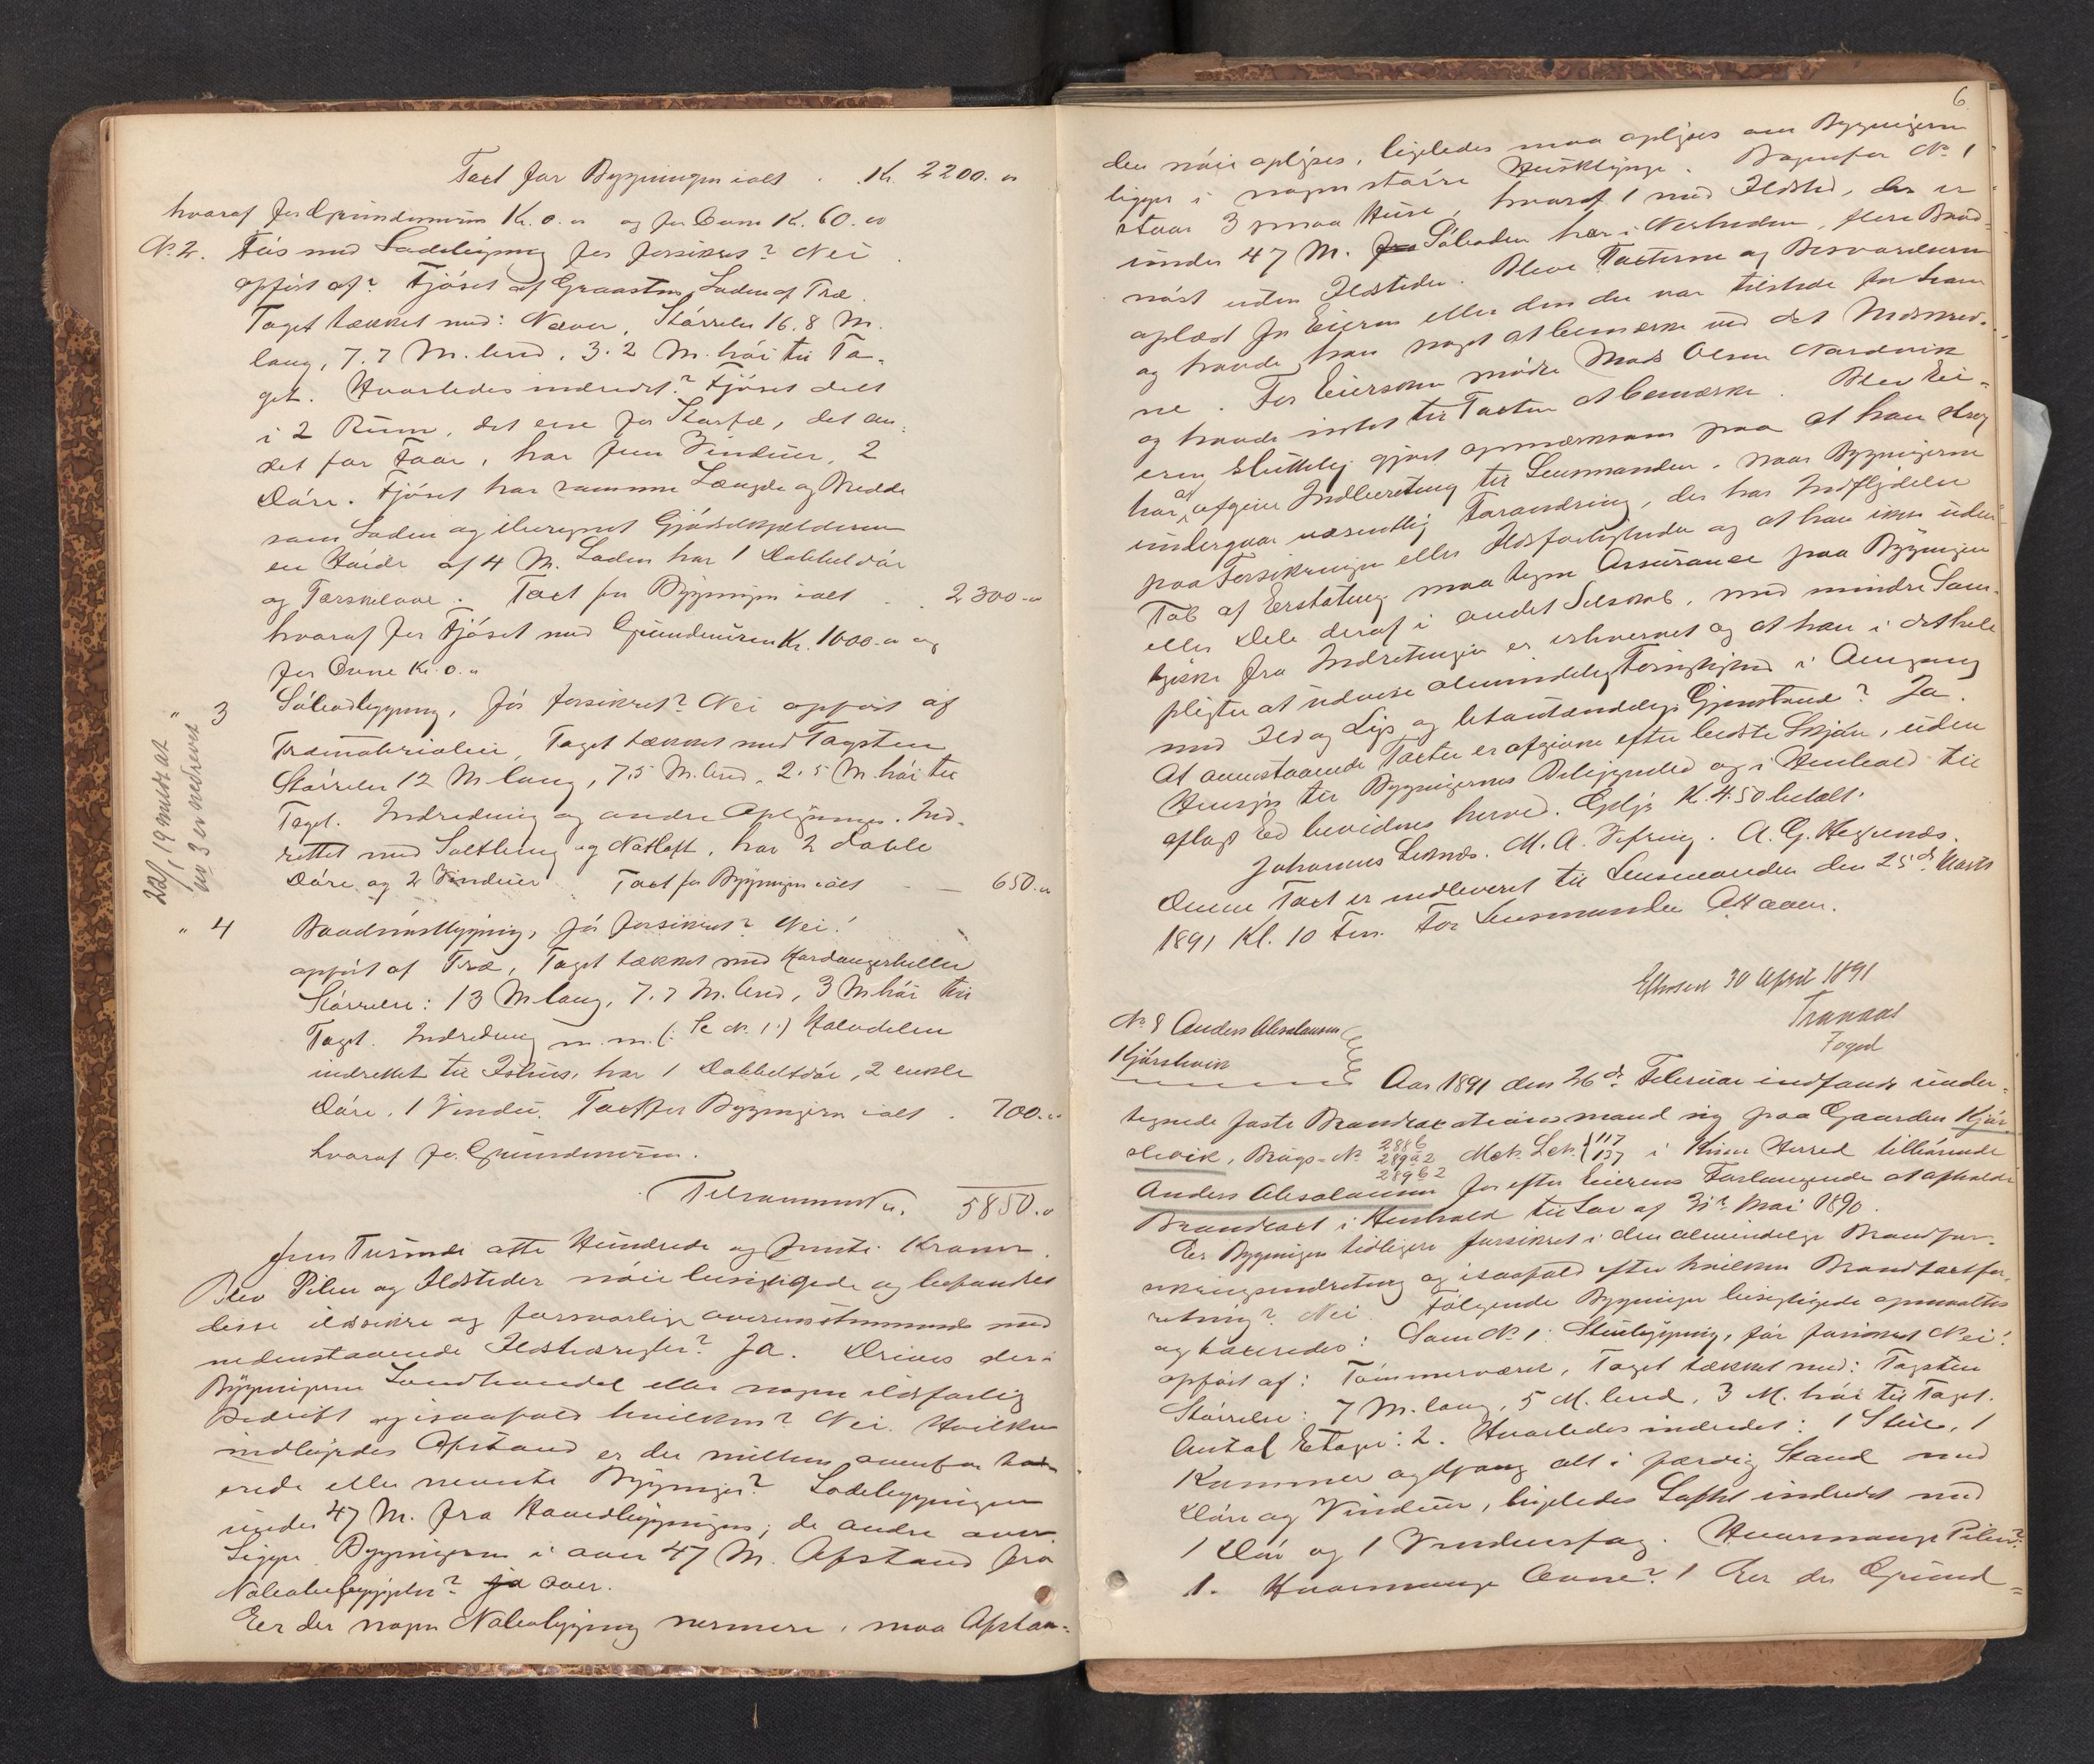 Taxt for Bygningen ialt . Kr. 2200.00
hvoraf for Grundmuren Kr. 0.00 og for Ovne Kr. 60.00
No 2. Fjøs med Ladebygning før forsikret? Nei.
opført af? Fjøset af Graasten, Laden af Træ.
Taget tækket med: Næver. Størrelse 16.8 M.
lang, 7.7 M. bred, 3.2 M. høi til Ta-
get. Hvorledes indredet? Fjøset delt
i 2 Rum, det ene for Storfæ, det an-
det for Faar, har fem Vinduer, 2
Døre. Fjøset har samme Længde og Bredde
som Laden og iberegnet Gjødselkjælderen
en Høide af 4 M. Laden har 1 Dobbeltdør
og Tærskelaave. Taxt for Bygningen ialt . . 2300.00
hvoraf for Fjøset med Grundmuren Kr. 1000.00 og
for Ovne Kr. 0.00
" 3 Søbodbygning, før forsikret? Nei opført af
Træmaterialier, Taget tækket med Tagsten
Størrelse 12 M lang, 7.5 M. bred, 2.5 M. høi til
Taget. Indredning og andre Oplysninger. Ind-
rettet med og Notloft, har 2 doble
Døre og 2 Vinduer. Taxt for Bygningen ialt — 650.00
22/1 19 meldt at
no 3 er nedrevet
" 4 Baadnøstbygning, før forsikret? Nei!
opført af Træ, Taget tækket med Hardangerheller
Størrelse: 13 M lang, 7.7 M. bred, 3 M. høi til
Taget. Indredning m. m. (: Se No 1:) Halvdelen
indrettet til Ishus, har 1 Dobbeltdør, 2 enkle
Døre, 1 Vindu. Taxt for Bygningen ialt . 700.00
hvoraf for Grundmuren.
Tilsammen Kr. 5850.00
fem Tusinde otte Hundrede og femti Kroner.
Blev Piber og Ildsteder nøie besigtigede og befandtes
disse ildsikre og forsvarlige overensstemmende med
nedenstaaende Ildstedsregler? Ja. Drives der i
Bygningerne Landhandel eller nogen ildsfarlig
Bedrift og isaafald hvilken? Nei. Hvilken
indbyrdes Afstand er der mellem ovenfor tax-
erede eller nævnte Bygninger? Ladebygningen
under 47 M. fra Hovedbygningen; de andre over
Ligger Bygningerne i over 47 M. Afstand fra
Nabobebyggelse? ja over.
Er der nogen Nabobygning nærmere, maa Afstan-
6
den nøie oplyses, ligeledes maa oplyses om Bygningerne
ligger i nogen større Husklynge. Bagenfor No 1
staar 3 smaa Huse, hvoraf 1 med Ildsted, der er
under 47 M. fra Søboden her i Nærheden, flere Baad-
nøst uden Ildsteder. Bleve Taxterne og Besvarelserne
oplæst for Eieren eller den der var tilstede for ham
og havde han noget at bemærke ved det Indskrev-
ne. For Eiersken mødte Mads Olsen Nordvik
og havde intet til Taxten at bemærke. Blev Ei-
eren sluttelig gjort opmærksom paa at han strax
har at afgive Indberetning til Lensmanden, naar Bygningerne
undergaar væsentlig Forandring, der har Indflydelse
paa Forsikringen eller Ildsfarligheden og at han ikke uden
Tab af Erstatning maa tegne Assurance paa Bygningen
eller Dele deraf i andet Selskab, med mindre Sam-
tykke fra Indretningen er erhvervet og at han i det hele
pligter at udvise almindelig Forsigtighed i Omgang
med Ild og Lys og letantændelige Gjenstande? Ja.
At ovenstaaende Taxter er afgivne efter bedste Skjøn, uden
Hensyn til Bygningernes Beliggenhed og i Henhold til
aflagt Ed bevidnes herved. Gebyr Kr. 4.50 betalt.
Johannes Seknes. M. A. Vefring. A. G. Hegrenæs.
Denne Taxt er indleveret til Lensmanden den 25de Marts
1891 Kl. 10 Fm. For Lensmanden
Efterseet 30 April 1891
Tranaas
Foged
No 8 Anders Absalonsen
Kjørslevik
Aar 1891 den 26de Februar indfandt under-
tegnede faste Brandtaxationsmænd sig paa Gaarden Kjør-
slevik, Brugs-No 2886 289a2 28962 Matr. Løb. 117 137 i Kinn Herred tilhørende
Anders Absalonsen for efter Eierens Forlangende at afholde
Brandtaxt i Henhold til Lov af 31te Mai 1890.
Er Bygningen tidligere forsikret i den almindelige Brandfor-
sikringsindretning og isaafald efter hvilken Brandtaxtfor-
retning? Nei. Følgende Bygninger besigtigede opmaaltes
og taxeredes: Som No 1: Stuebygning, før forsikret Nei!
opført af: Tømmerværk, Taget tækket med: Tagsten
Størrelse: 7 M. lang, 5 M. bred, 3 M. høi til Taget.
Antal Etager: 2. Hvorledes indredet: 1 Stue, 1
Kammer og Gang alt i færdig Stand med
Døre og Vinduer, ligeledes Loftet indredet med
1 Dør og 1 Vinduesfag. Hvormange Piber?
1. Hvormange Ovne? 1 Er der Grund-